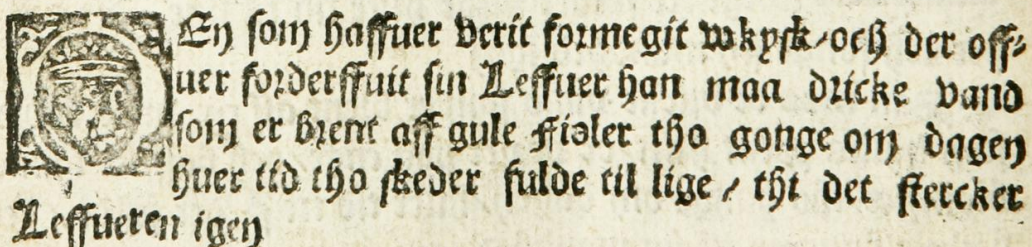 DEn som haffuer verit formegit wkysk/och der off⸗
uer forderffuit sin Leffuer han maa dricke vand
som er brent aff gule Fioler tho gonge om dagen
huer tid tho skeder fulde til lige / thi det stercker
Leffueren igen